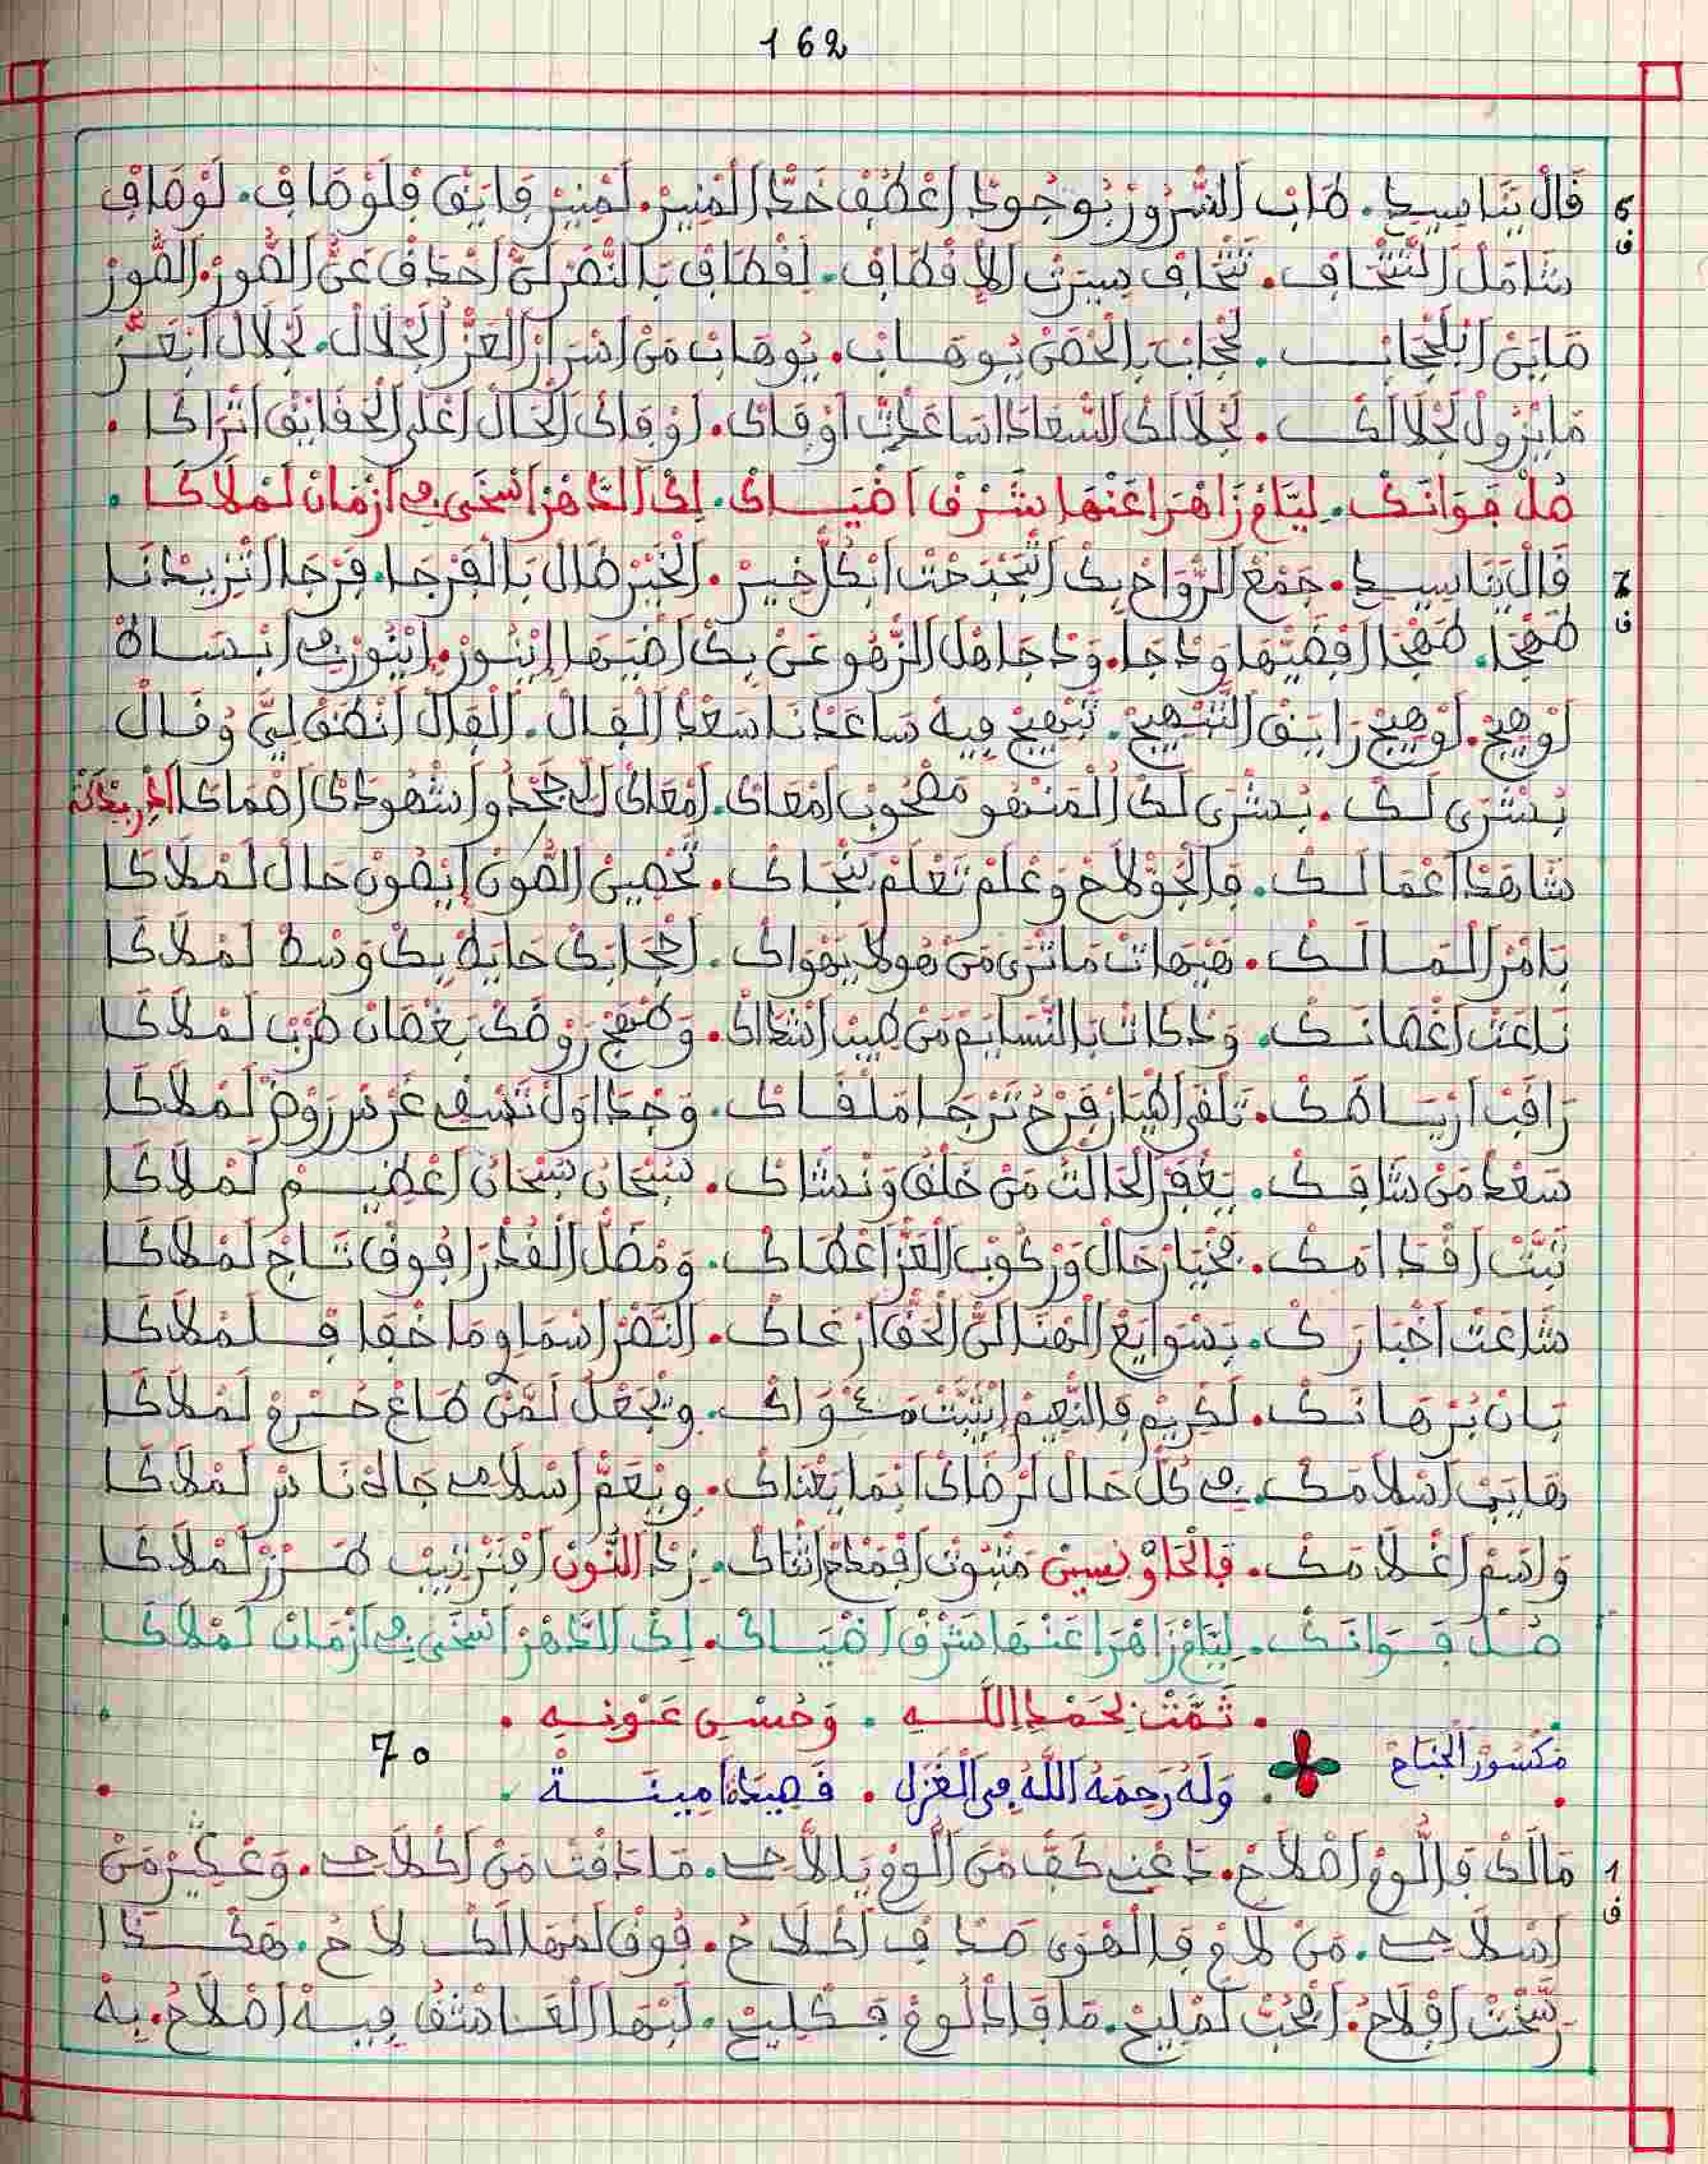 162
6 ف
فَالْ يَنَاسِيدِ. طَابْ السّْرُورْ بُوجُودْ اعْطَفْ خَدّْ الْمْنِيرْ. لَمْنِيرْ فَايَقْ فَلَوْصَافْ. لَوْصَافْ
شَامَلْ التَّتْحَافْ. تَتْحَافْ سِيرْتْ الاقْطَافْ. لَقْطَافْ بَالنّْصَرْ لَنّْ احْدَافْ عَنّْ الصُّورْ. الصُّورْ
صَايَنْ ابْلَحْجَابْ. لَحْجَابْ بِالْحَصْنْ يُوهَابْ. يُوهَابْ مَنْ اسْرَارْ الْعَزّْ الْجْلَالْ. لَجْلَالْ ابْعَزّْ
مَايْزُولْ لَجْلَالَكْ. لَجْلَالَكْ السّْعَادَا سَاعْدَتْ اوْقَاكْ. اوْقَاكْ الْحَالْ اعْلَى الْحَقَايَقْ اتْرَاكَا.
صُلْ صَوَانَكْ. لِيَّاعْ زَاهْرَا عَنْهَا شَرْفْ اضْيَاكْ. لَكْ الدّْهَرْ اسْخَى فِي ازْمَانْ لَمْلَاكَا.
7 ف
فَالْ يَنَاسِيدِ. جَمْعْ الرّْوَاحْ بِكْ اتْبَجّْحَتْ ابْكُلّْ خِيرْ. الْخَيْرْ طَالْ بَالْفَرْجَا. فَرْجَا اتْزِيدْنَا
طَهْجَا. طَهْجَا افْضِيهَا وَدْجَا. وَدْجَا هَلْ الزّْهُو عَنْ بِكْ اضْيَهَا إِينُورْ. إِينُورْ فِي ابْسَاطْ
لَوْهِيجْ. لَوْهِيجْ رَايَقْ التَّبْهِيجْ. تَبْهِيجْ فِيهْ سَاعَدْنَا سَعْدْ الْفَالْ. الْفَالْ انْطَقْ لِيَّ وُفَالْ
بُشْرَى لَكْ. بُشْرَى لَكْ الْمَنْهُو مَصْحُوبْ امْعَاكْ. امْعَاكْ وَاشْهُودَكْ اصْمَاكَا
شَاهْدَا اعْمَالَكْ. فَالْجَوّْ لَاحْ وَعْلَمْ تَعْلَمْ بَنْجَاكْ. تَحْصِينْ الصُّونْ إِيصُونْ حَالْ لَمْلَاكَا
بَامْرْ الْمَالَكْ. هَيْهَاتْ مَاتْرَى مَنْ هُولَا يَهْوَاكْ. لَحْجَابَكْ حَايَطْ بِكْ وَسْطْ لَمْلَاكَا
نَاعْتْ اغْصَانَكْ. وَدْكَاتْ بَالنّْسَايَمْ مَنْ طِيبْ اشْدَاكْ. وَطْهَجْ رَوْضَكْ بَغْصَانْ طَرْبْ لَمْلَاكَا
رَاقَبْ ارْيَاضَكْ. تَلْقَى اطْيَارْ فَرْحْ تَرْجَا مَلْقَاكْ. وَجْدَاوَلْ تَسْقِ غَرْسْ رَوْضْ لَمْلَاكَا
سَعْدْ مَنْ شَافَكْ. يَغْفَرْ الْخَالَقْ مَنْ خَلْقَ وَنْشَاكْ. سُبْحَانْ سُبْحَانْ اعْظِيمْ لَمْلَاكَا
تَبَّتْ اقْدَامَكْ. مَخْيَارْ حَالْ وَرْكُوبْ الْعَزّْ اعْطَاكْ. وَمْضَلّْ الْفُخْرْ افُوقْ تَاجْ لَمْلَاكَا
شَاعَتْ اخْبَارَكْ. بَسْوَايَعْ الْهْنَا لَنّْ الْحَقّْ ارْعَاكْ. النّْصَرْ اسْمَا وِمَا خْفَا فَلَمْلَاكَا
بَانْ بُرْهَانَكْ. لَكْرِيمْ فَالنّْعِيمْ اِيثَبَّتْ مَثْوَاكْ. وِيَجْعَلْ لَمَّنْ طَاعْ لَمْلَاكَا
هَايْبْ اسْلَامَكْ. فِي كُلّْ حَالْ لَرْضَاكْ انْمَا يَغْنَاكْ. وِيْعَمّْ اسْلَامِي جَالَكْ نَاسْ لَمْلَاكَا
وَاسْمْ اعْلَامَكْ. فَالْحَاوْ بِسِينْ مَثْبُوتْ افْمَدْحْ اثْنَاكْ. زِدْ النُّونْ افْتَرْتِيبْ طَرْزْ لَمْلَاكَا
صُلْ صَوَانَكْ. لِيَّاعْ زَاهْرَا عَنْهَا شَرْفْ اضْيَاكْ. لَكْ الدّْهَرْ اسْخَى فِي ازْمَانْ لَمْلَاكَا
. تَمَّتْ بِحَمْدِ اللَّهِ . وَحُسْنِ عَوْنِهِ .
مكسور الجناح
وَلَهُ رَحِمَهُ اللَّهُ فِي الْغَزَلِ . قَصِيدَةُ امِينَةْ 70
1 ف
مَالَكْ فَاللُّوعْ اصْلَاحْ. دَعْنِ كَفّْ مَنْ اللُّوعْ يَلَّاحِ. مَادَقْتْ مَنْ اكْلَاحِ. وَعْكِيرْ مَنْ
اسْلَاحِ. مَنْ لَاعْ فَالْهْوَى صَدَفْ اكْلَاحُ. فُوقْ لَمْهَالَكْ لَاحُ. هَكْدَا
رَسْخَتْ افْلَاحُ. افْحُبّْ لَمْلِيحْ. مَافَادْ لُوعْ فَكْلِيحْ. لَبْهَا الْعَاشَقْ فِيهْ اصْلَاحُ. بِهْ